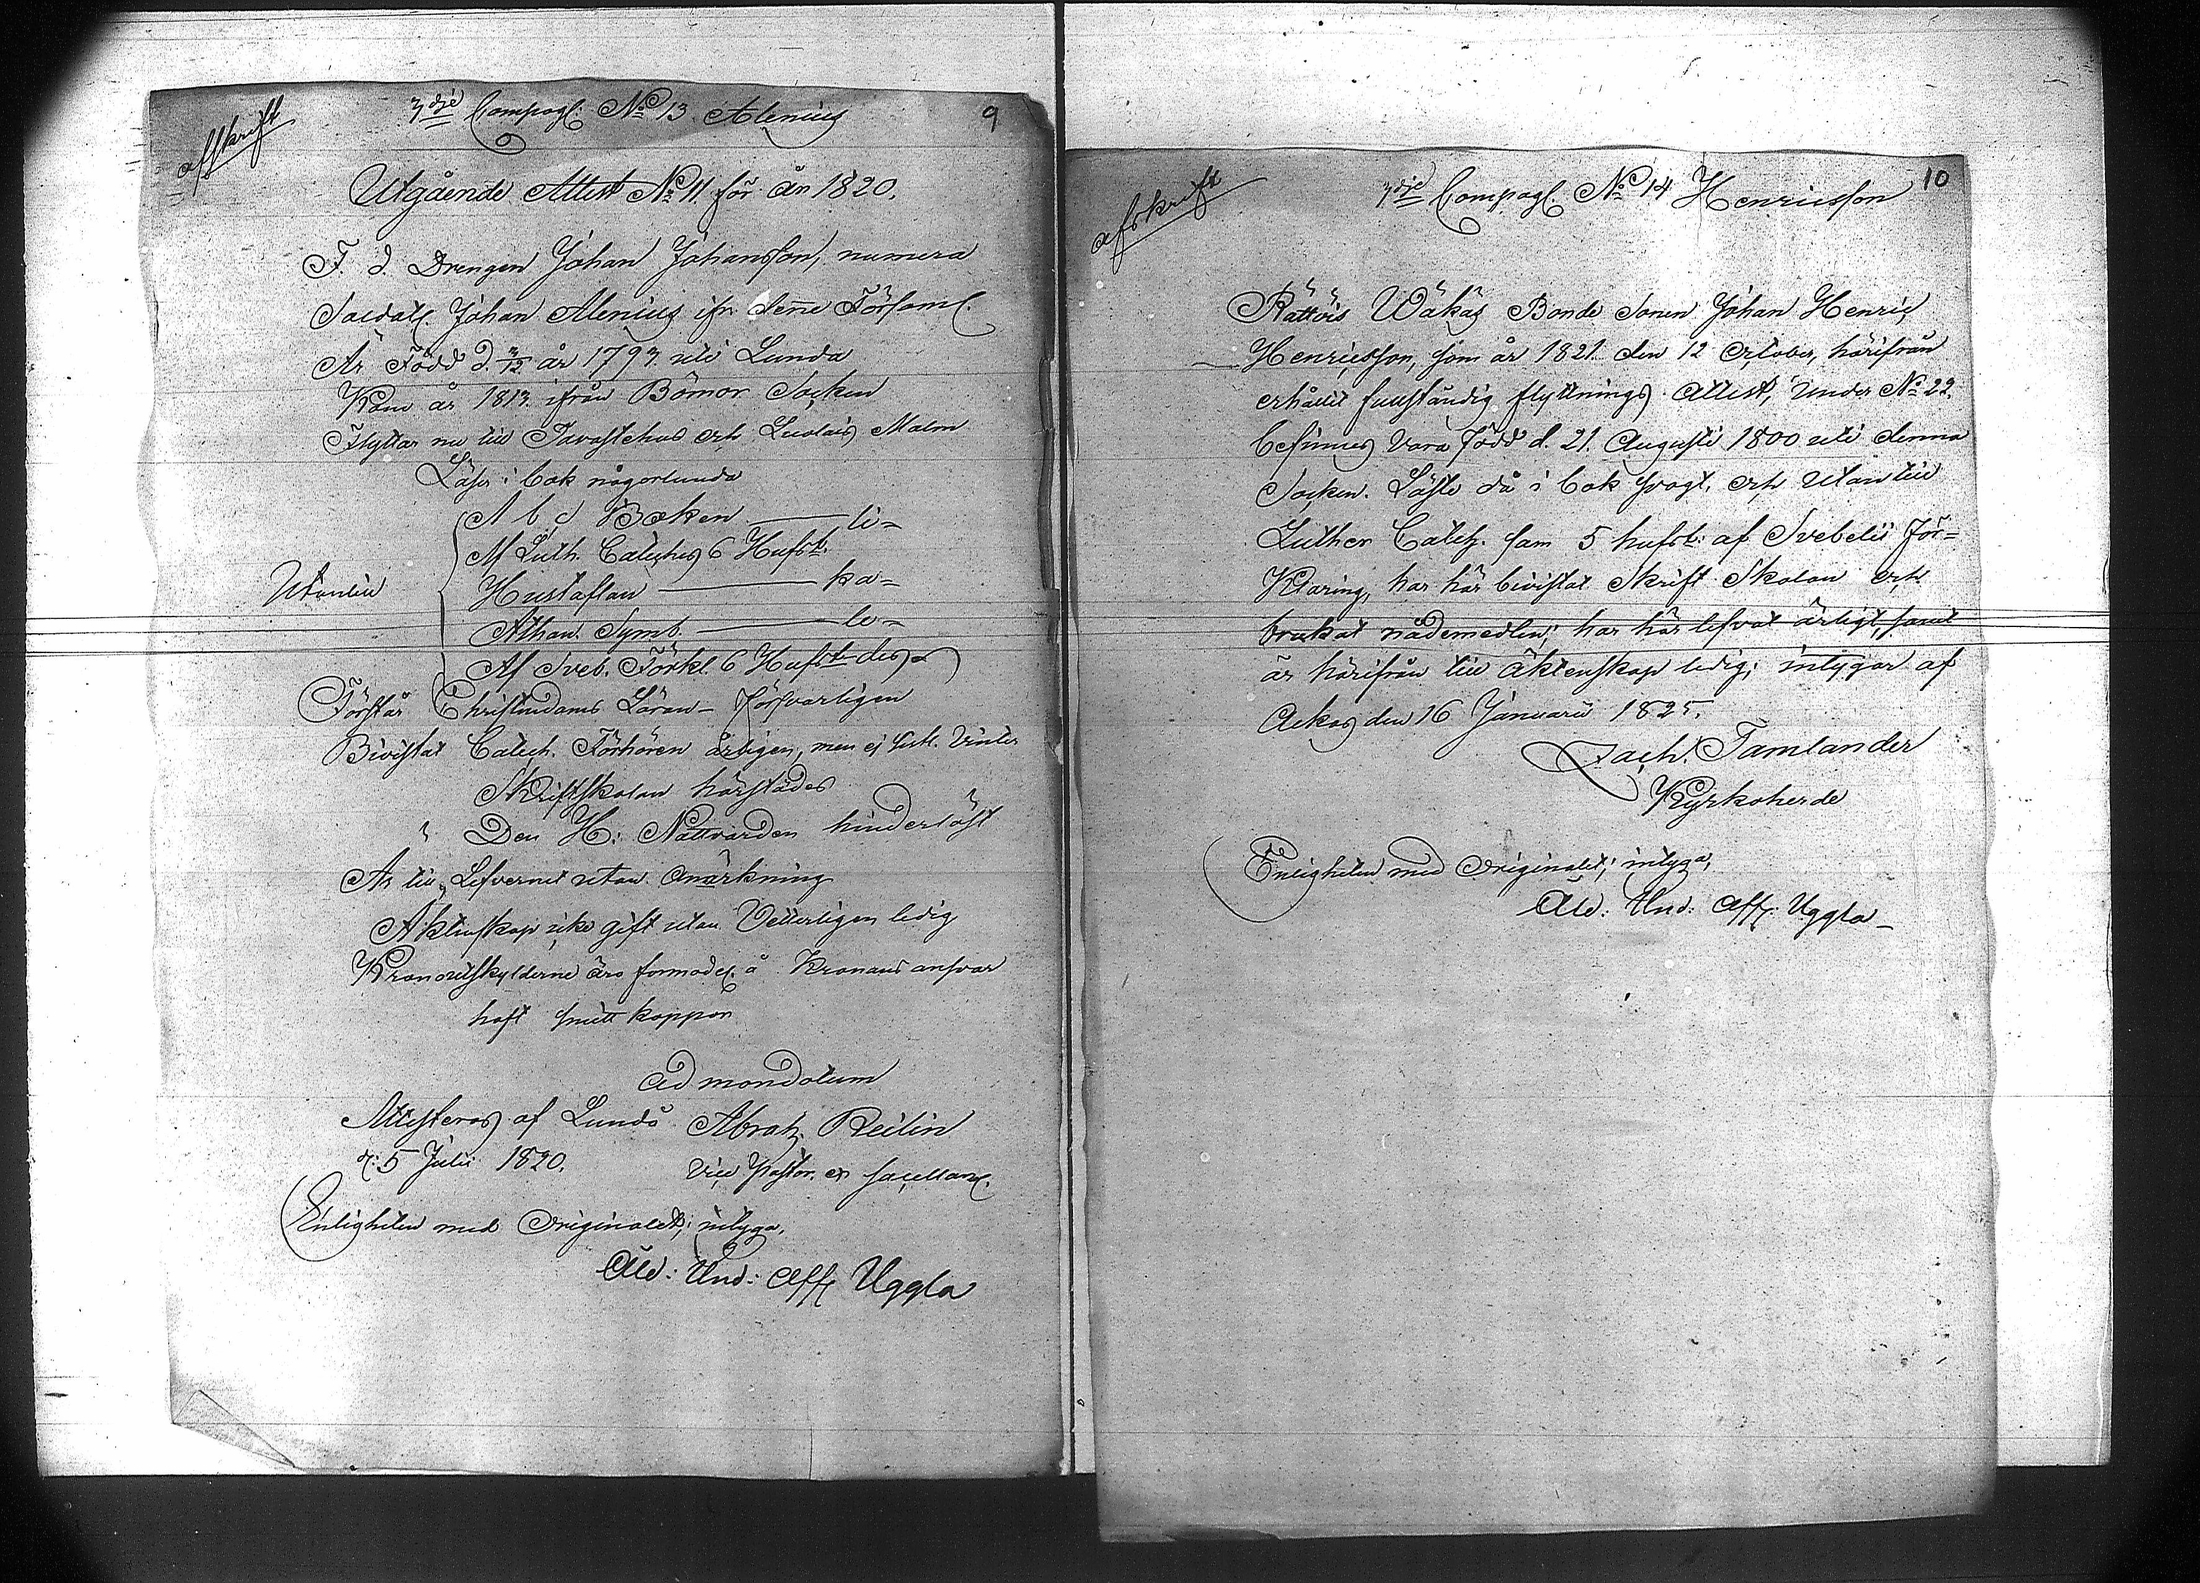 afskrift
3dje Compagl. No 13 Alenius
9
Utgående Attest No 11 för år 1820.
F. d. Drengen Johan Johansson, numera
Soldat Johan Alenius ifr. denne Församl.
Är Född d. 3/12 år 1793 uti Lunda
Kom år 1813 ifrån Bömor Socken
Flyttar nu till Tavastehus och Malm
Läser i bok någorlunda
Utantill
A b c Boken — li=
M Luth. Cateches 6 Hufst.
Hustaflan — ka=
Athan. Symb. — le=
Af Sveb. Förkl. 6 Hufst des
Förstår Christendoms Läran – försvarligen
Bivistat Catech. Förhören årligen, men ej Vinter
Skriftskolan härstädes
" Den H: Nattvarden hinderlöst
Är till Lefvernet utan Anmärkning
Äktenskap icke gift utan Vetterligen ledig
Kronoutskylderne äro förmodel. å Kronans ansvar
haft smittkoppor
ad mandatum
Attesteras af Lunda Abrah. Reilin
d. 5 Julii 1820. Vice Pastor. et Sacellan.
Enligheten med Originalet; intyga,
Ald: Und: Off: Uggla
afskrift
3dje Compagl. No 14 Henricsson
10
Rättöis Wäkäs Bonde Sonen Johan Henric
Henricsson, som år 1821 den 12 October, härifrån
erhållit fullständig flyttnings Attest, under No 22.
befinnes vara född d. 21. Augusti 1800 uti denna
Socken. Läste då i bok svagt, och utantill
Luther Catech. sam 5 hufst: af Svebelii För=
klaring, har här bivistat Skrift Skolan och
brukat nådemedlen; har här lefvat ärligt, samt
är härifrån till äktenskap ledig; intygar af
Ackas den 16 Januarii 1825.
Zach. Tamlander
Kyrkoherde
Enligheten med Originalet; intyga,
Ald: Und: Off: Uggla